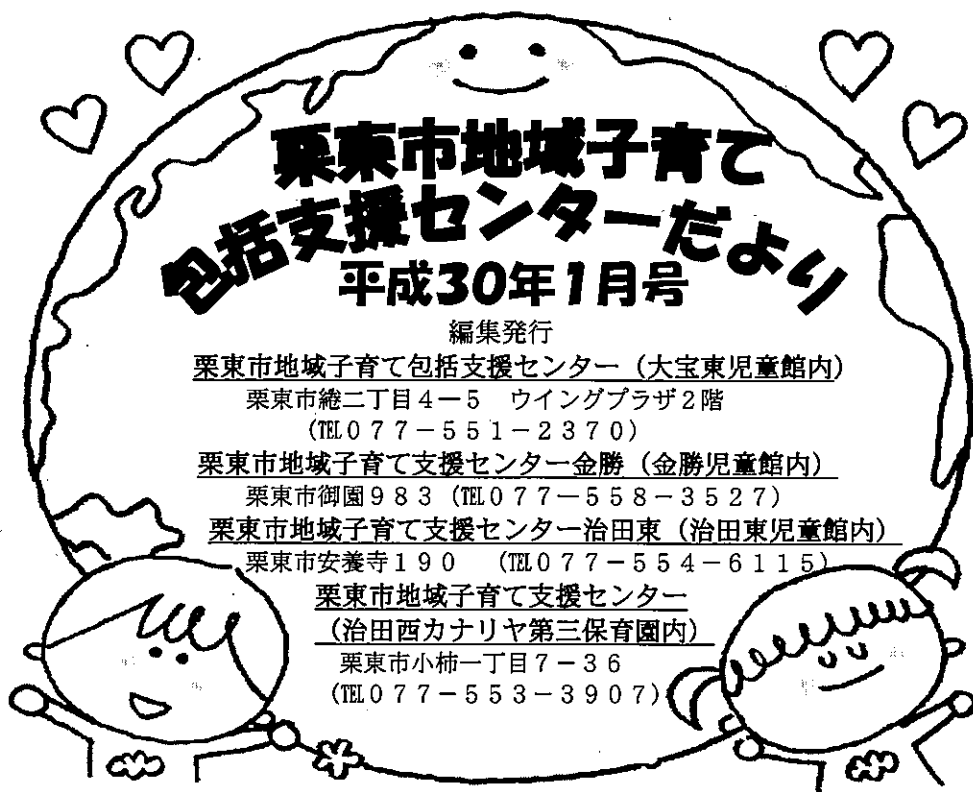 栗東市地域子育て
包括支援センターだより
平成30年1月号
編集発行
栗東市地域子育て包括支援センター（大宝東児童館内）
栗東市綣二丁目4－5　ウイングプラザ2階
(℡077－551－2370)
栗東市地域子育て支援センター金勝（金勝児童館内）
栗東市御園983 (℡077－558－3527)
栗東市地域子育て支援センター治田東（治田東児童館内）
栗東市安養寺190　(℡077－554－6115)
栗東市地域子育て支援センター
（治田西カナリヤ第三保育園内）
栗東市小柿一丁目7－36
(℡077－553－3907)